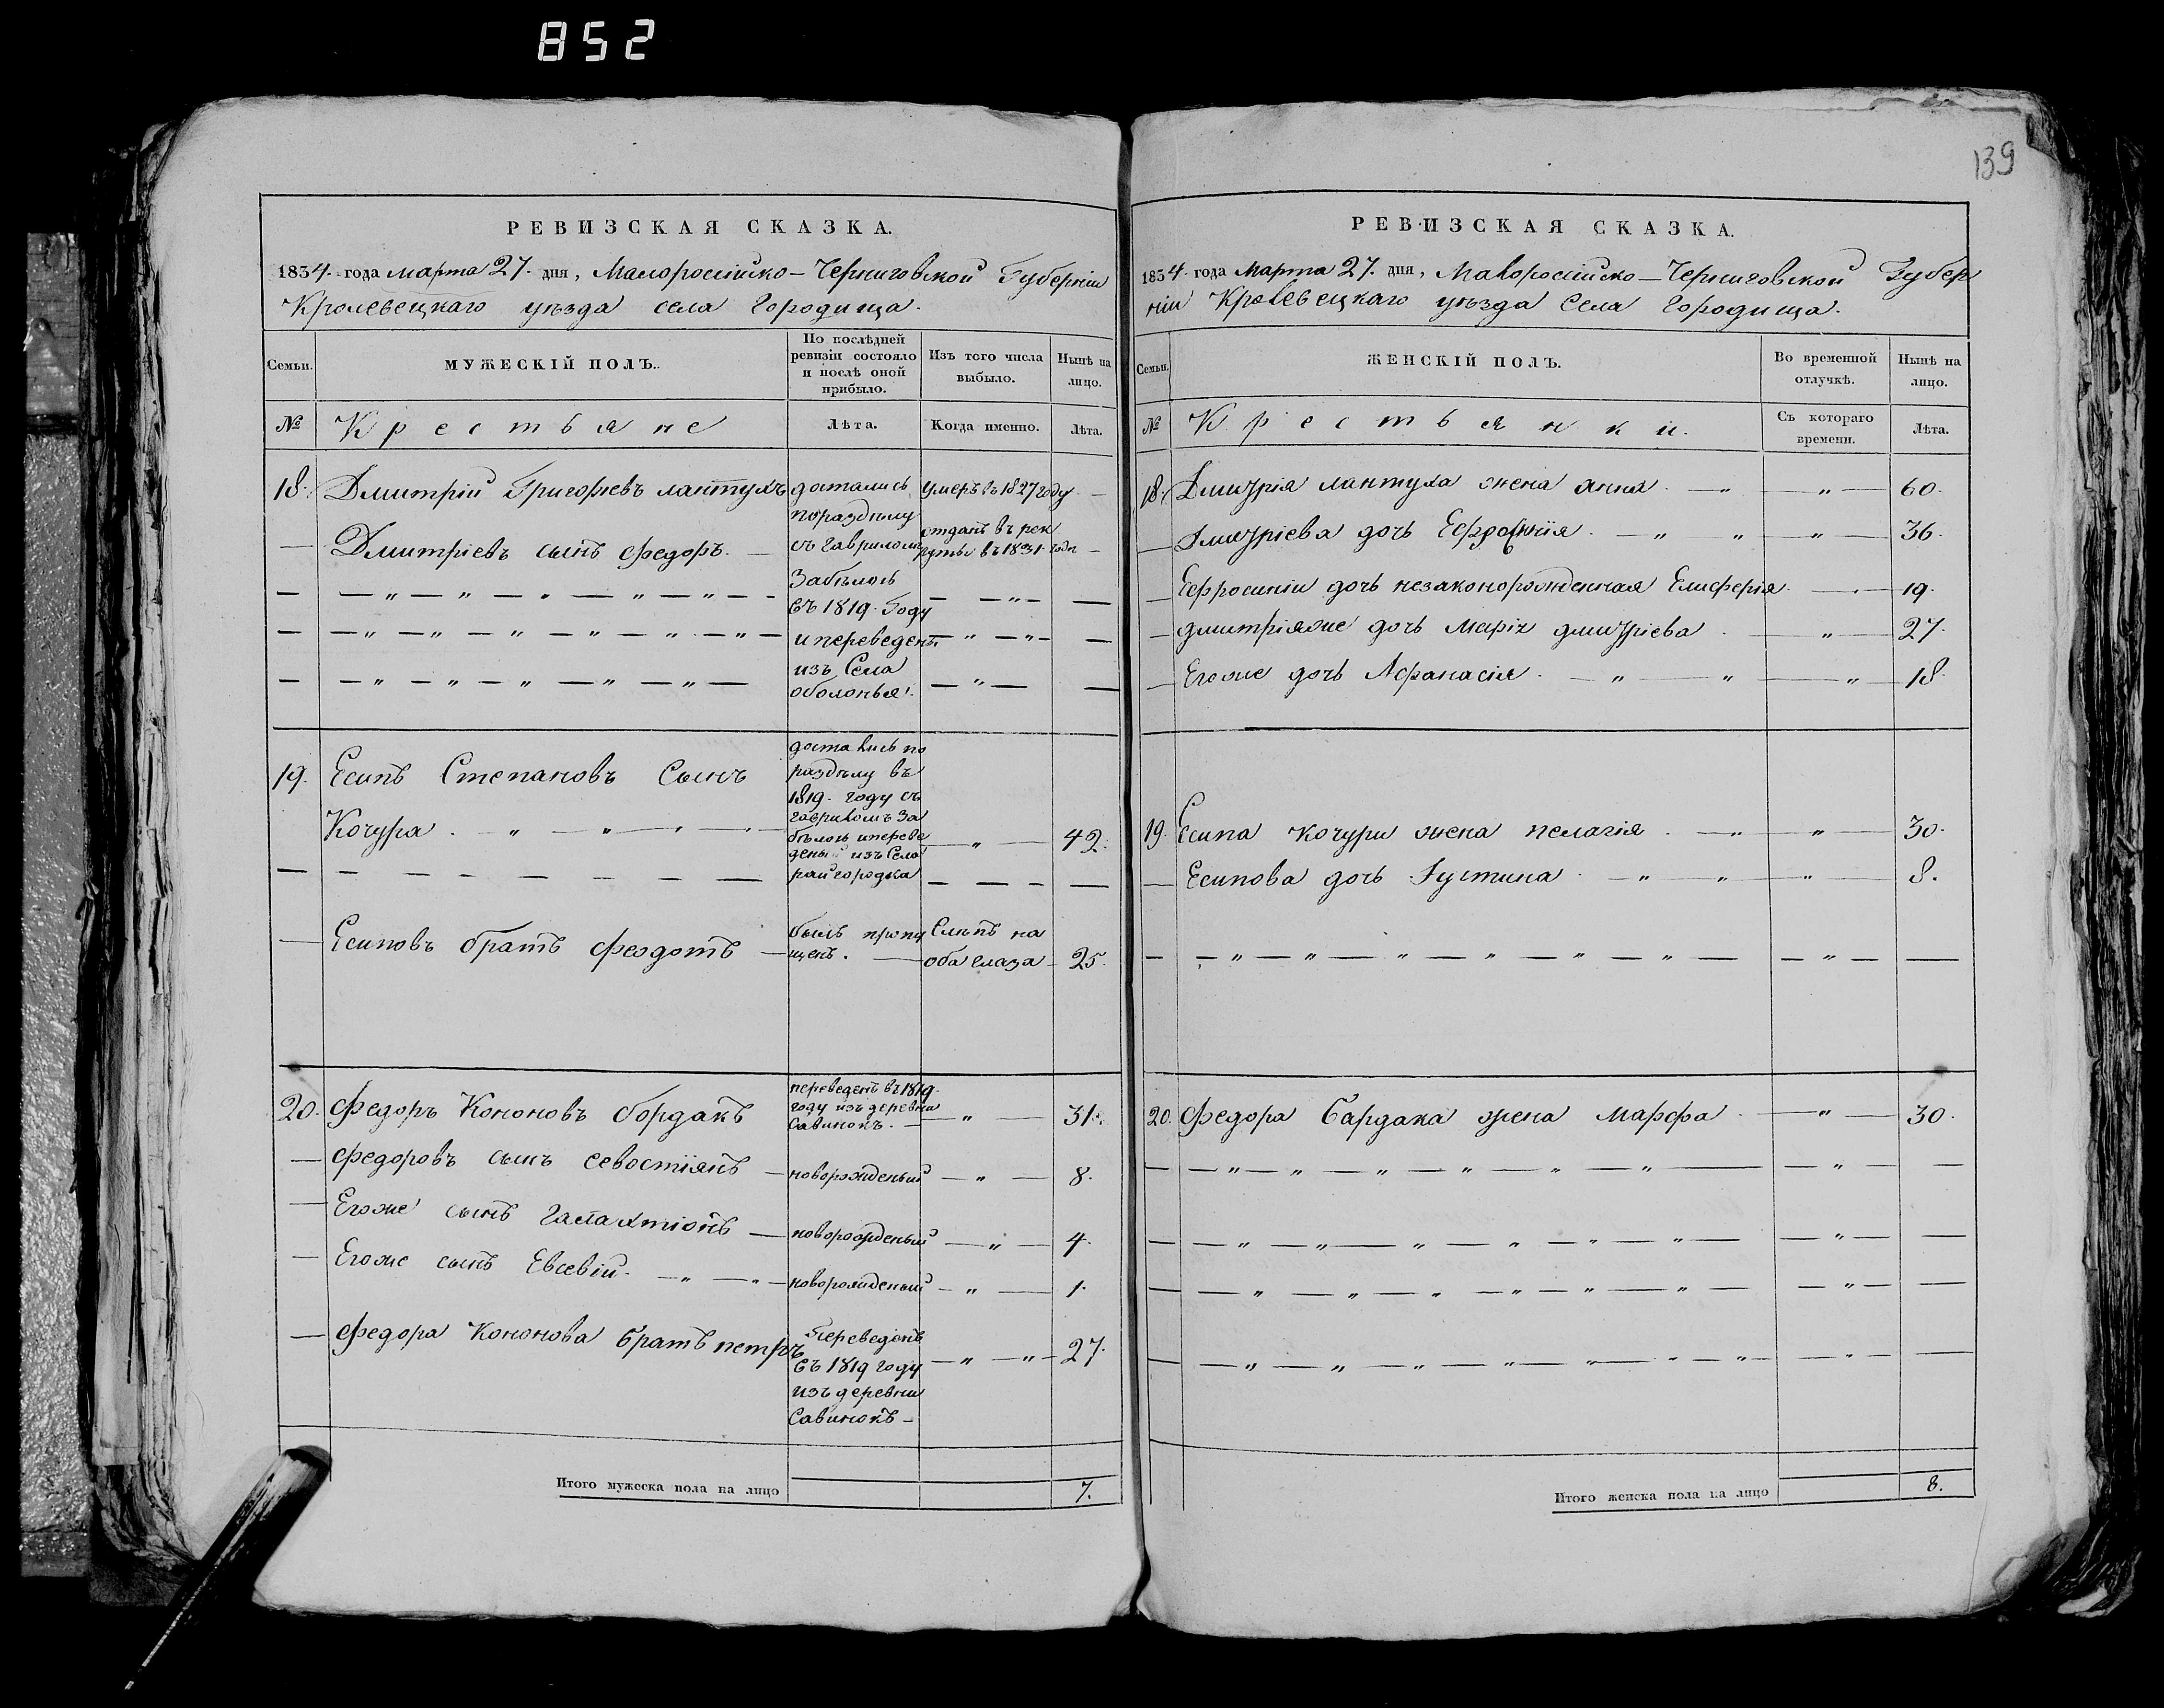 852
139
РЕВИЗСКАЯ СКАЗКА.
1834 года Марта 27. дня, Малороссійско-Черниговской Губерніи
Кролевецкаго уѣзда села Городища.
Семьи.
МУЖЕСКІЙ ПОЛЪ.
По послѣдней
ревизіи состояло
и послѣ оной
прибыло.
Изъ того числа
выбыло.
Нынѣ на
лицо.
№
Крестьяне
Лѣта.
Когда именно.
Лѣта.
18. Дмитрій Григорьевъ лантухъ
достались
поразделу
съ Гавриломъ
Забѣлою
въ 1819. Году
и переведенъ
изъ Села
оболонья.
умеръ въ 1827 году
— Дмитріевъ сынъ федоръ. —
отданъ въ рек
руты въ 1831 годѣ
19. Есипъ Степановъ Сынъ
Кочура
достались по
разделу въ
1819. году съ
гавриломъ За
бѣлою и переве
дены изъ Села
райгородка
42.
— Есиповъ братъ феодотъ —
былъ пропу
щенъ.
Слепъ на
оба глаза
25.
20. федоръ Кононовъ бордакъ
переведенъ въ 1819.
году изъ деревни
Савинокъ. —
— „ — 31.
— федоровъ сынъ севостіянъ — новорожденый — „ — 8.
— Егоже сынъ галактіонъ — новорожденый — „ — 4.
— Егоже сынъ Евсевій. — „ — „ — новорожденый — „ — 1.
— федора Кононова братъ петръ
Переведенъ
въ 1819 году
изъ деревни
Савинокъ —
— „ — „ — 27.
Итого мужеска пола на лицо 7.
РЕВИЗСКАЯ СКАЗКА.
1834 года Марта 27. дня, Малороссійско-Черниговской Губер
ніи Кролевецкаго уѣзда Села Городища.
Семьи.
ЖЕНСКІЙ ПОЛЪ.
Во временной
отлучкѣ.
Нынѣ на
лицо.
№
Крестьянки.
Съ котораго
времени.
Лѣта.
18. Дмитрія лантуха жена анна. — „ — „ — 60.
— Дмитріева дочь Ефросинія. — „ „ — „ — 36.
— Ефросиніи дочь незаконорожденная Елиферія — 19.
— дмитріяже дочь Марія дмитріева. — „ — 27.
— Егоже дочь Афанасія. — „ — „ — „ — 18.
19. Есипа Кочури жена пелагія. — „ — „ — 30.
— Есипова дочь Іустина — „ — „ — „ — 8.
20. федора Бардака жена марфа. — „ — 30.
Итого женска пола на лицо 8.